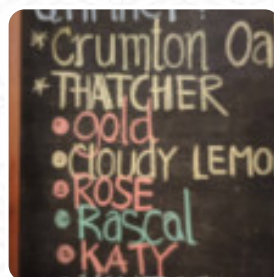 *Crumton Oa
*THATCHER
Gold
Cloudy LEMO
ROSE
Rascal
KATY